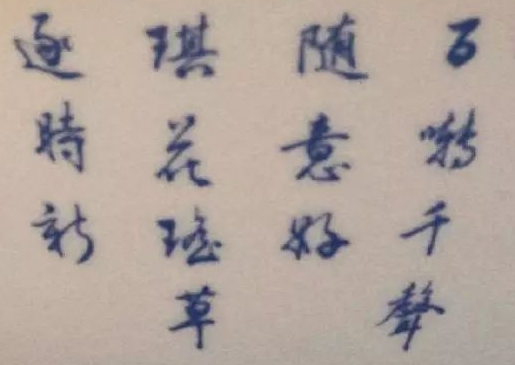 百啭千聲
随意好
琪花瑤草
逐時新